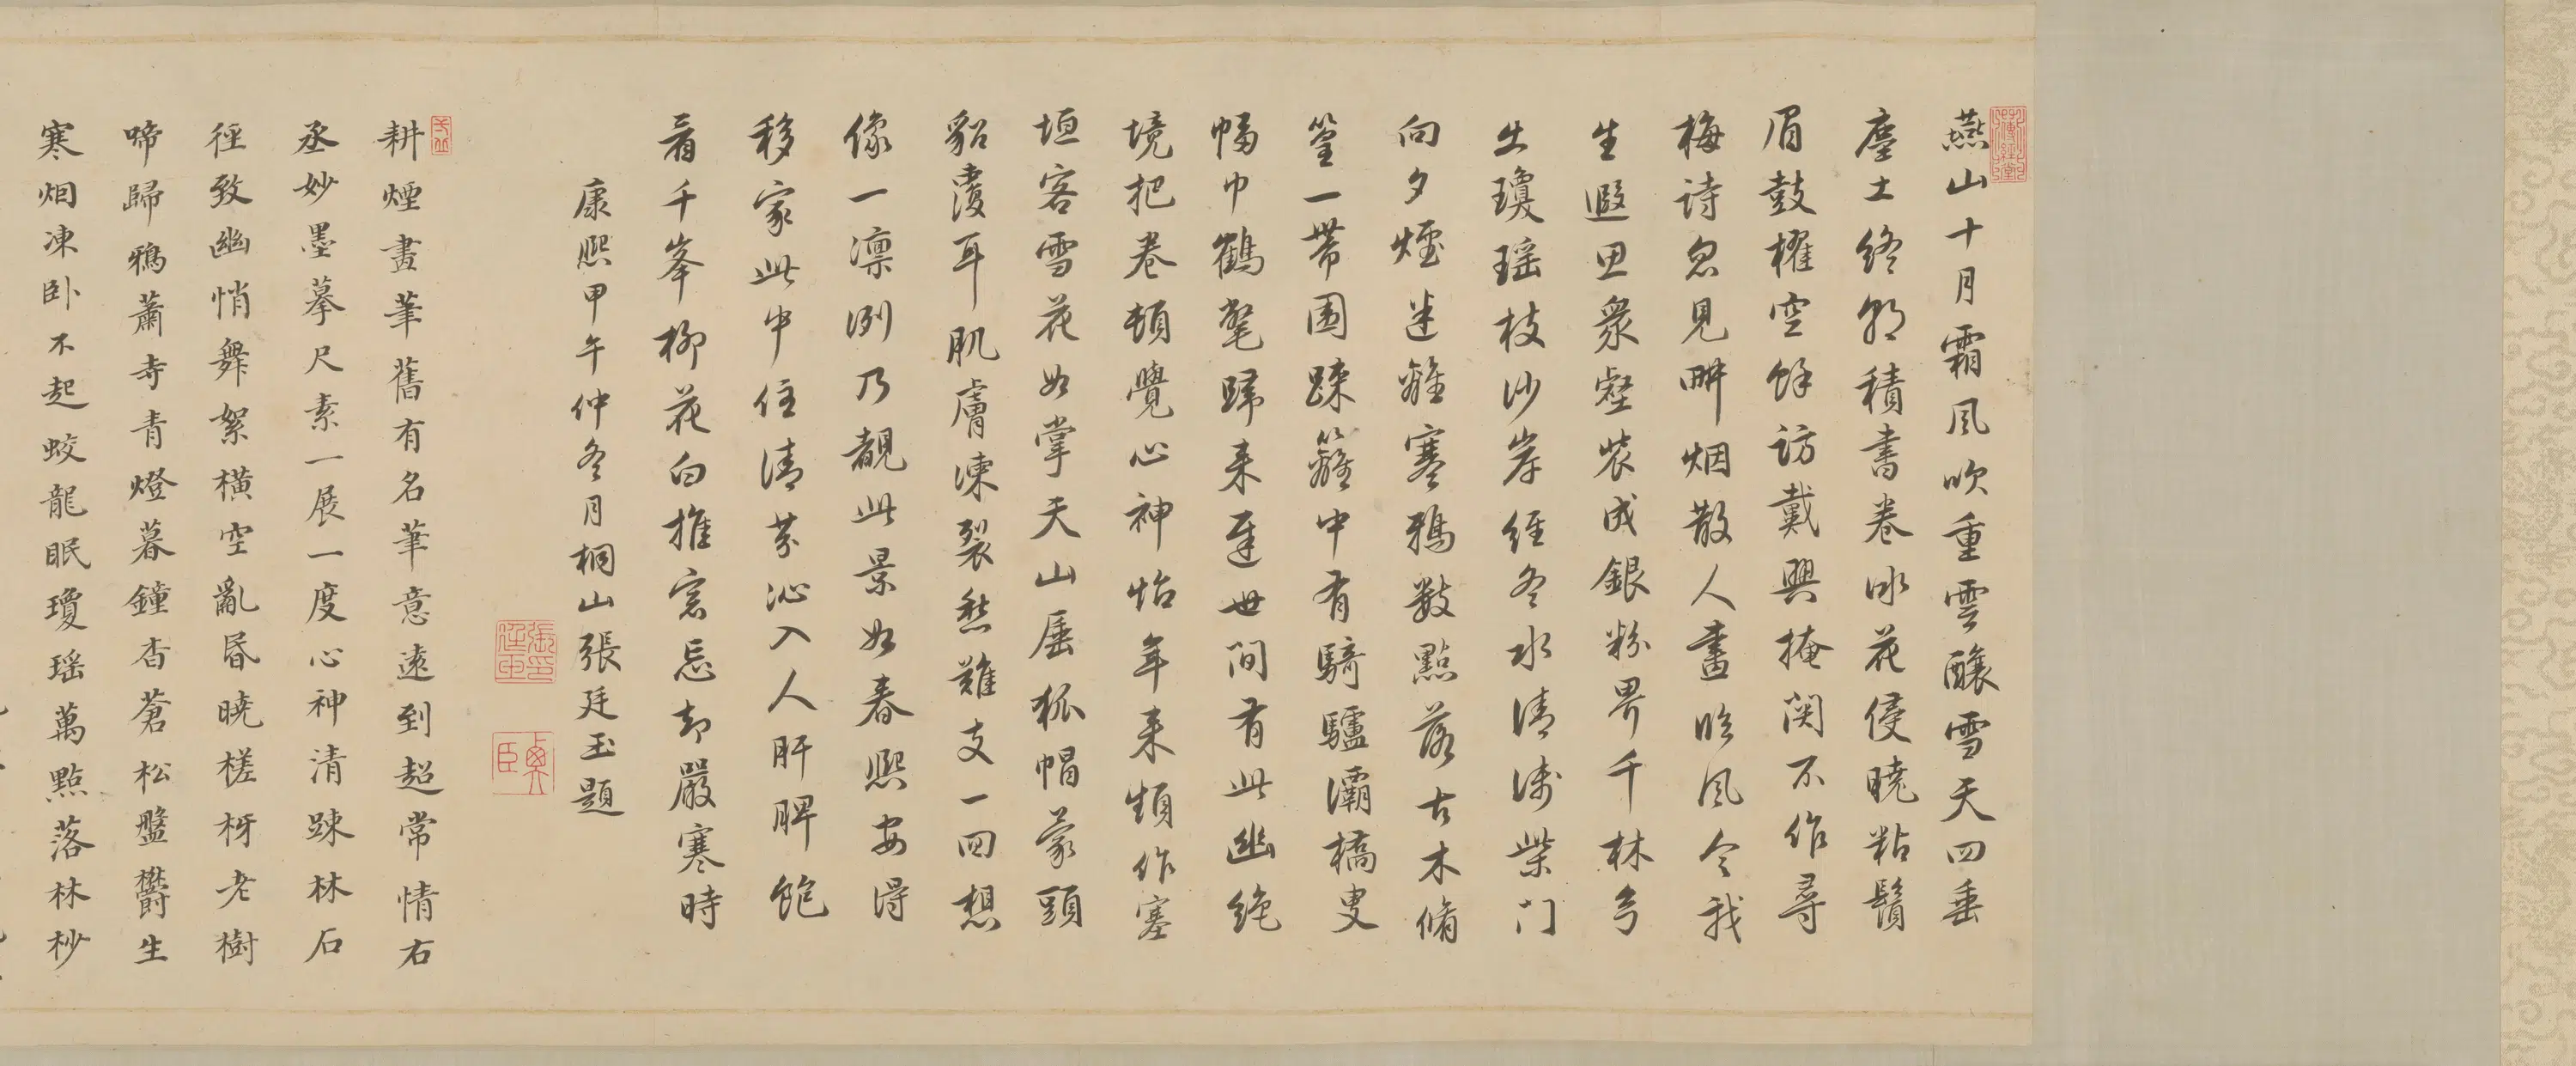 燕山十月霜風吹重雲釀雪天四垂
塵土終朝積書卷冰花侵曉粘鬚
眉鼓櫂空餘訪戴興掩関不作尋
梅詩忽見畊烟散人畫臨風令我
生遐思衆壑裝成銀粉界千林弓
出瓊瑶枝沙岸經冬水清淺柴门
向夕煙迷離寒鴉數點落古木脩
篁一帶圍踈籬中有騎驢灞橋叟
幅巾鶴氅歸来遲世间有此幽絶
境把卷頓覺心神怡年来頻作塞
垣客雪花如掌天山厓狐帽蒙頭
貂覆耳肌膚凍裂愁難支一回想
像一凛冽乃覩此景如春熙安得
移家此中住清芬沁入人肝脾飽
看千峯柳花白推窓忘却嚴寒時
康熙甲午仲冬月桐山張廷玉題
張廷玉印
衡臣
耕煙畫筆舊有名筆意遠到超常情右
丞妙墨摹尺素一展一度心神清踈林石
徑致幽悄舞絮橫空亂昏曉槎枒老樹
啼歸鴉蕭寺青燈暮鐘杳蒼松盤欝生
寒烟凍卧不起蛟龍眠瓊瑶萬點落林杪